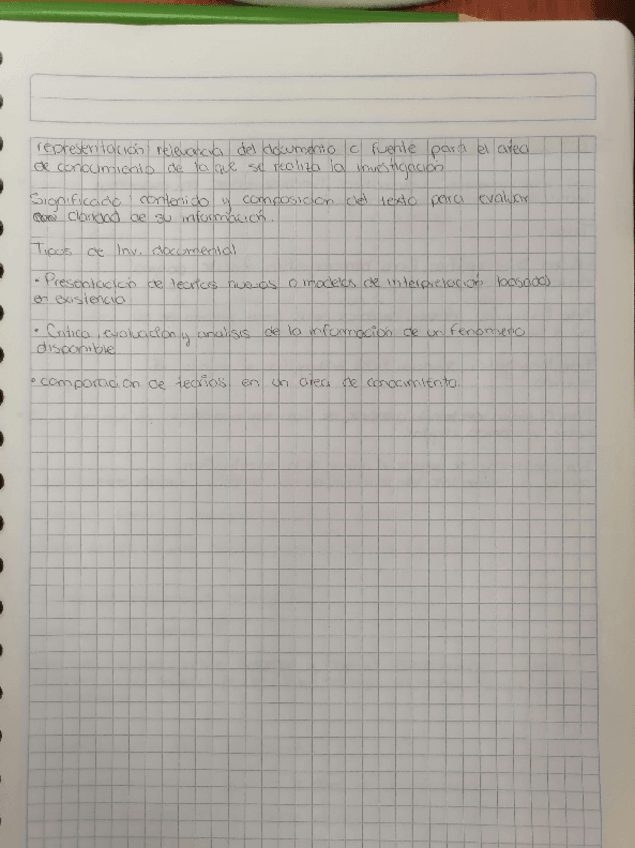 representación relevancia del documento o fuente para el area
de conocimiento de la que se realiza la investigación
Significado contenido y composicion del texto para evaluar
claridad de su información.
Tipos de Inv. documental
• Presentación de teorias nuevas o modelos de interpretación basados
en existencia
• Critica, evaluación y analisis de la información de un fenomeno
disponible
• comparación de teorias en un area de conocimiento.